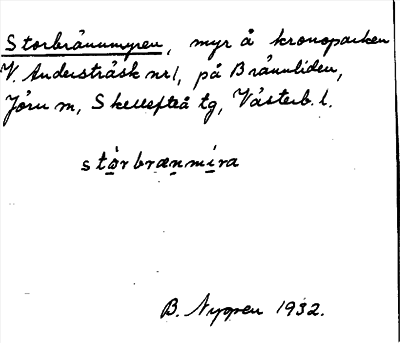 Storbrännmyren, myr å kronoparken
V. Andersträsk nr 1, på Brännliden,
Jörn m, Skellefteå tg, Västerb. l.
stòrbrænmíra
B. Nygren 1932.